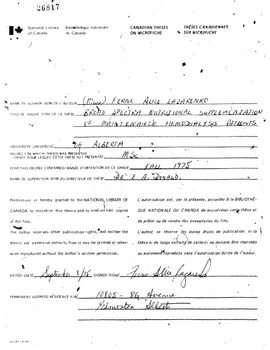 26817
National Library of Canada
Bibliothèque nationale du Canada
CANADIAN THESES ON MICROFICHE
THÈSES CANADIENNES SUR MICROFICHE
NAME OF AUTHOR/NOM DE L'AUTEUR (Miss) FERNE ALICE LAZARENKO
TITLE OF THESIS/TITRE DE LA THÈSE BROAD SPECTRA NUTRITIONAL SUPPLEMENTATION
OF MAINTENANCE HEMODIALYSIS PATIENTS
UNIVERSITY/UNIVERSITÉ ALBERTA
DEGREE FOR WHICH THESIS WAS PRESENTED/
GRADE POUR LEQUEL CETTE THÈSE FUT PRÉSENTÉE MSc
YEAR THIS DEGREE CONFERRED/ANNÉE D'OBTENTION DE CE GRADE FALL 1975
NAME OF SUPERVISOR/NOM DU DIRECTEUR DE THÈSE DR. E. A. DONALD
Permission is hereby granted to the NATIONAL LIBRARY OF
CANADA to microfilm this thesis and to lend or sell copies
of the film.
The author reserves other publication rights, and neither the
thesis nor extensive extracts from it may be printed or other-
wise reproduced without the author's written permission.
L'autorisation est, par la présente, accordée à la BIBLIOTHÈ-
QUE NATIONALE DU CANADA de microfilmer cette thèse et
de prêter ou de vendre des exemplaires du film.
L'auteur se réserve les autres droits de publication; ni la
thèse ni de longs extraits de celle-ci ne doivent être imprimés
ou autrement reproduits sans l'autorisation écrite de l'auteur.
DATED/DATÉ September SIGNED/SIGNÉ Ferne Alice Lazarenko
PERMANENT ADDRESS/RÉSIDENCE FIXE 10805 - 84 Avenue
Edmonton Alberta